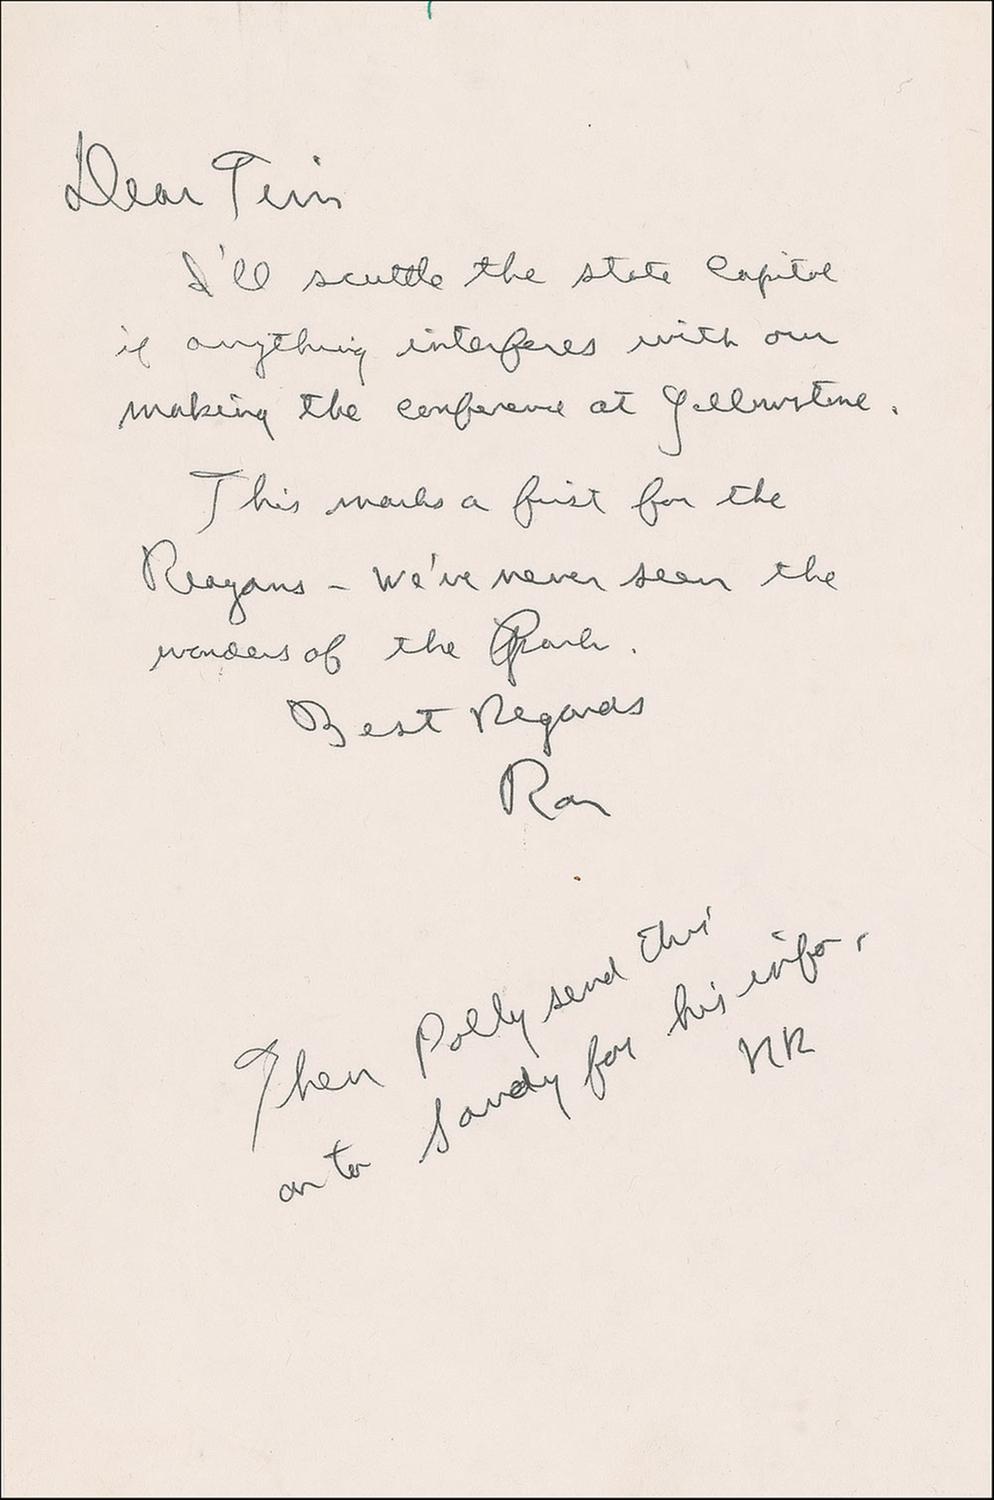 Dear Tim
I'll scuttle the state Capitol
if anything interferes with our
making the conference at Yellowstone.
This marks a first for the
Reagans - We've never seen the
wonders of the Park.
Best Regards
Ron
Then Polly send this
on to Sandy for his info.
RR